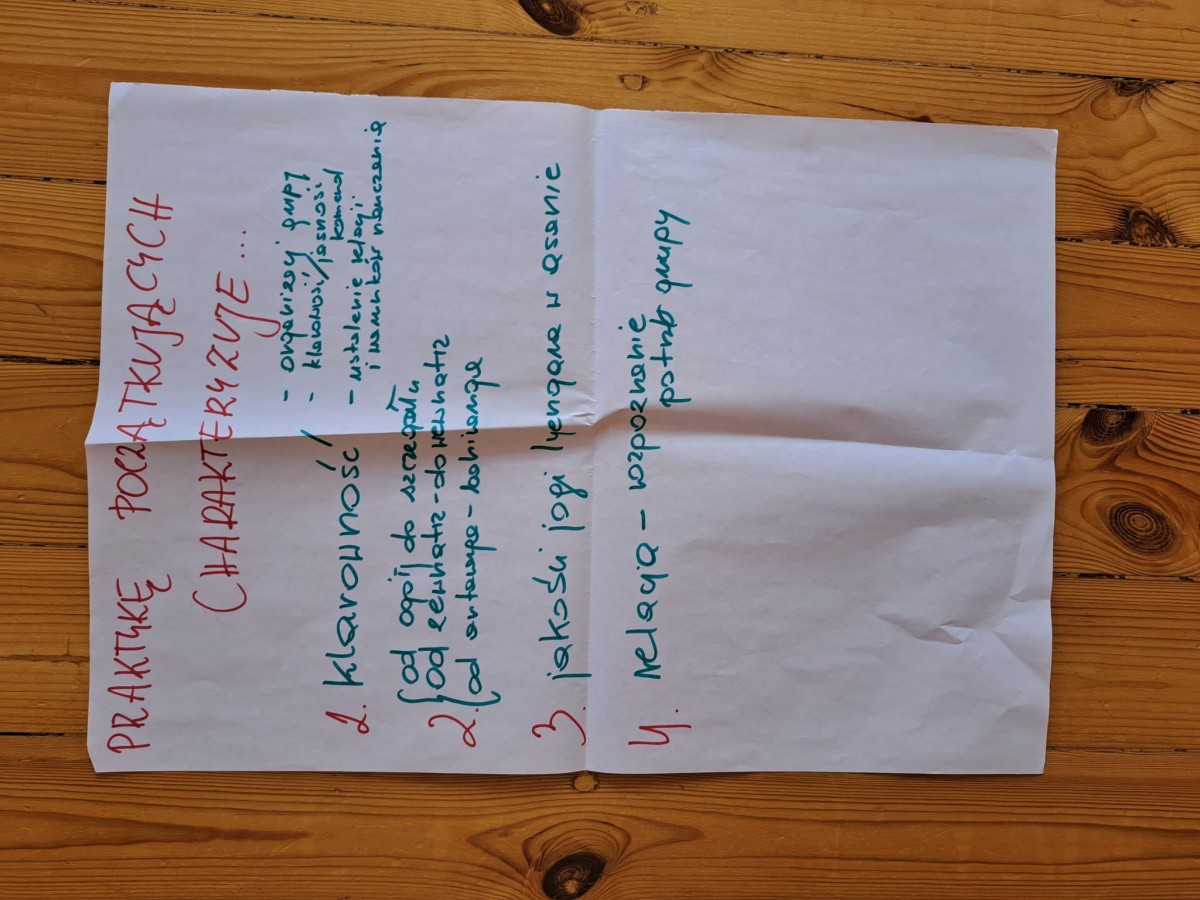 PRAKTYKĘ POCZĄTKUJĄCYCH
CHARAKTERYZUJE...
1. klarowność / - organizacji grupy
- klarowność/jasność
komend
- ustalenie relacji
i warunków nauczania
2. od ogółu do szczegółu
od zewnątrz - do wewnątrz
od antaranga - bahiranga
3. jakości jogi Iyengara w asanie
4. relacja - rozpoznanie
potrzeb grupy